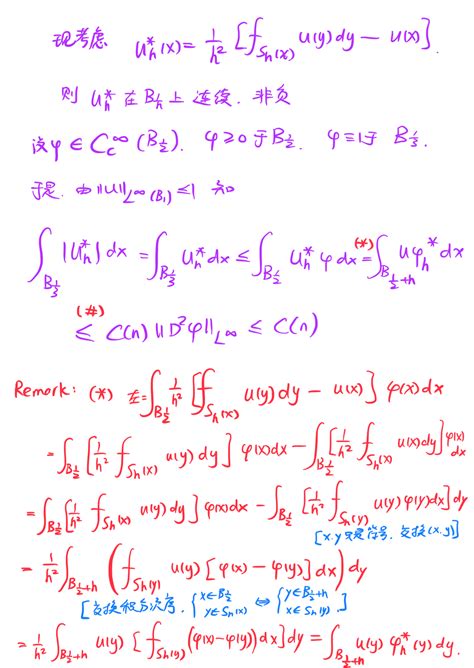 现考虑 $u_h^*(x)=\frac{1}{h^2}\left[⨍_{S_h(x)} u(y)dy-u(x)\right].$
则 $u_h^*$ 在 $B_{1-h}$ 上连续.非负
设 $\varphi\in C_c^\infty(B_{\frac12})$. $\varphi\geq 0$ 于 $B_{\frac12}$. $\varphi\equiv 1$ 于 $B_{\frac13}$.
于是.由 $\|u\|_{L^\infty(B_1)}\leq 1$ 知
$\int_{B_{\frac13}}|u_h^*|dx=\int_{B_{\frac13}}u_h^*dx\leq\int_{B_{\frac12}}u_h^*\varphi dx\overset{(*)}{=}\int_{B_{\frac12+h}}u\varphi_h^*dx$
$\overset{(\#)}{\leq} C(n)\|D^2\varphi\|_{L^\infty}\leq C(n)$
Remark: (*) 左$=\int_{B_{\frac12}}\frac{1}{h^2}\left[⨍_{S_h(x)}u(y)dy-u(x)\right]\varphi(x)dx$
$=\int_{B_{\frac12}}\left[\frac{1}{h^2}⨍_{S_h(x)}u(y)dy\right]\varphi(x)dx-\int_{B_{\frac12}}\left[\frac{1}{h^2}⨍_{S_h(x)}u(x)dy\right]\varphi(x)dx$
$=\int_{B_{\frac12}}\left[\frac{1}{h^2}⨍_{S_h(x)}u(y)dy\right]\varphi(x)dx-\int_{B_{\frac12}}\left[\frac{1}{h^2}⨍_{S_h(y)}u(y)\varphi(y)dx\right]dy$
[x.y 只是符号,交换(x.y)]
$=\frac{1}{h^2}\int_{B_{\frac12+h}}\left(⨍_{S_h(y)}u(y)[\varphi(x)-\varphi(y)]dx\right)dy$
[交换积分次序, $\begin{cases}x\in B_{\frac12}\\y\in S_h(x)\end{cases}\Leftrightarrow\begin{cases}y\in B_{\frac12+h}\\x\in S_h(y)\end{cases}$]
$=\frac{1}{h^2}\int_{B_{\frac12+h}}u(y)\left[⨍_{S_h(y)}(\varphi(x)-\varphi(y))dx\right]dy=\int_{B_{\frac12+h}}u(y)\varphi_h^*(y)dy.$